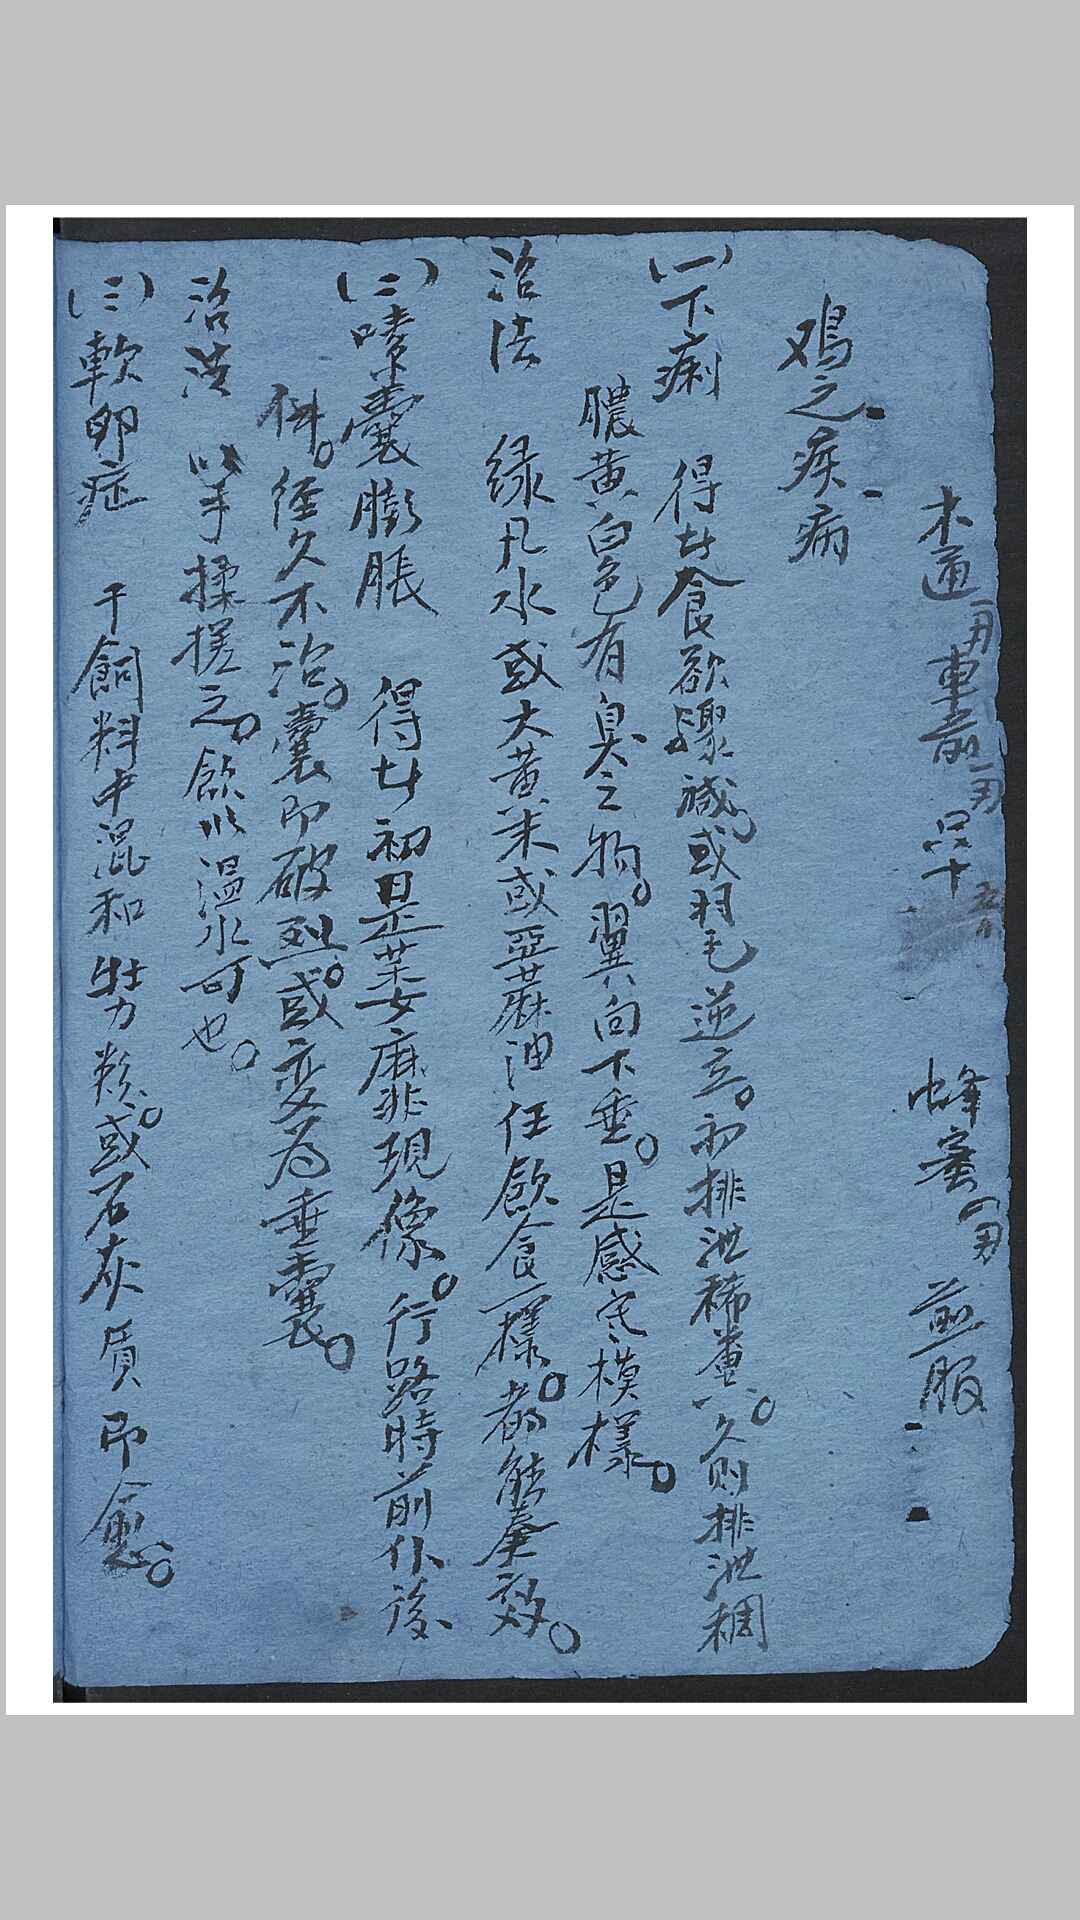 木通 一另 車前 一另 蜂蜜 一另 煎服
鸡之疾病
(一)下痢 得廿食欲骤减或羽毛逆立。初排泄稀薄。久则排泄稠
膿黄白色有臭之物。翼向下垂。是感寒模樣。
治法 绿凡水或大黄末或亞蔴油任飲食一樣。都能奏效。
(二)嗉囊膨脹 得廿初是萎靡現像。行路時前仆後
仆。經久不治。囊即破列。或変為垂囊。
治法 以手揉搓之。飲以溫水可也。
(三)軟卵症 干飼料中混和牡力粉。或石灰質即愈。